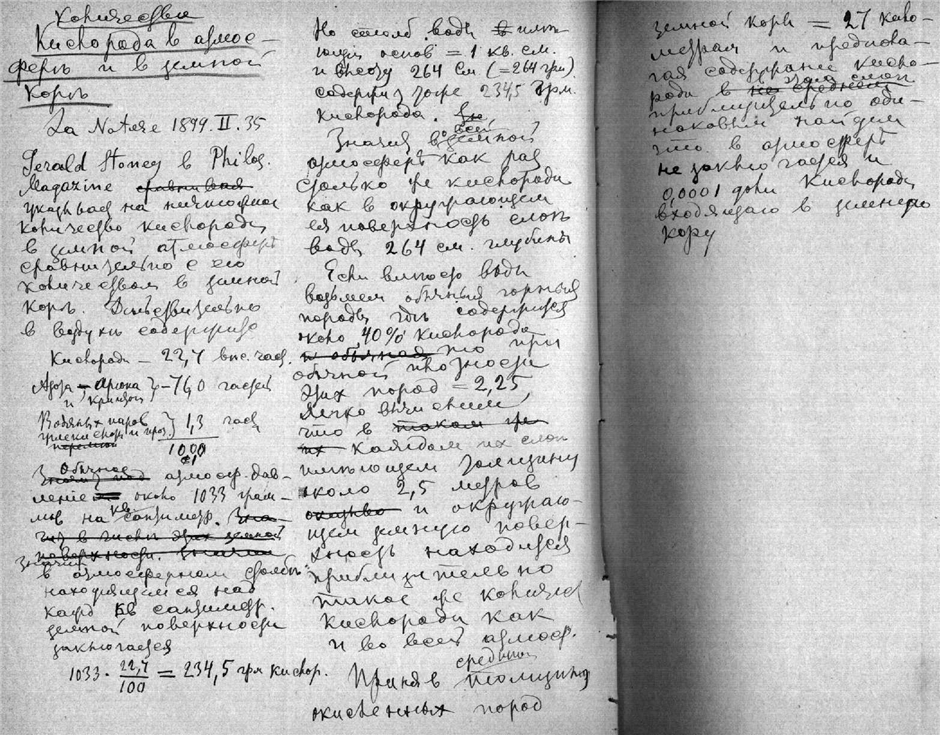 Количество
Кислорода в атмос-
ферѣ и в земной
корѣ
La Nature 1899. II. 35
Gerald Stoney в Philos.
Magazine сравнивая
указывая на ничтожное
количество кислорода
в земной атмосферѣ
сравнительно с его
количеством в земной
корѣ. Дѣйствительно
в воздухѣ содержится
Кислорода – 22,7 вѣс. час.
Азота – Аргона } – 76,0 частей
и Криптона
Водяных паров } 1,3 час
углекислоты и проч
1000
Обычное атмосф. дав-
ление около 1033 грам-
мов на кв сантиметр.
поверхности. Значит
Значит
в атмосферном столбѣ
находящемся над
кажд кв сантиметр.
земной поверхности
заключается
1033 · 22,7/100 = 234,5 грм кислор.
Но столб воды имѣ-
ющий основ = 1 кв. см.
и высоту 264 см (=264 грм)
содержит тоже 234,5 грм.
кислорода.
Значит во всей земной
атмосферѣ как раз
столько же кислорода
как в окружающем
ея поверхность слоѣ
воды 264 см. глубины
Если вмѣсто воды
возьмем обычныя горныя
породы, гдѣ содержится
около 40% кислорода
то при
обычной плотности
этих пород = 2,25
легко вычислим,
что в таком же
их каждом их слоѣ
имѣющем толщину
около 2,5 метров
и окружаю-
щем земную повер-
хность находится
приблизительно
такое же колич.
кислорода как
и во всей атмосф.
Приняв среднюю толщину
окисленных пород
земной коры = 27 кило-
метрам и предпола-
гая содержание кисло-
рода в этом слоѣ
приблизительно оди-
наковым найдем
что в атмосферѣ
не заключается и
0,0001 доли Кислорода
входящаго в земную
кору